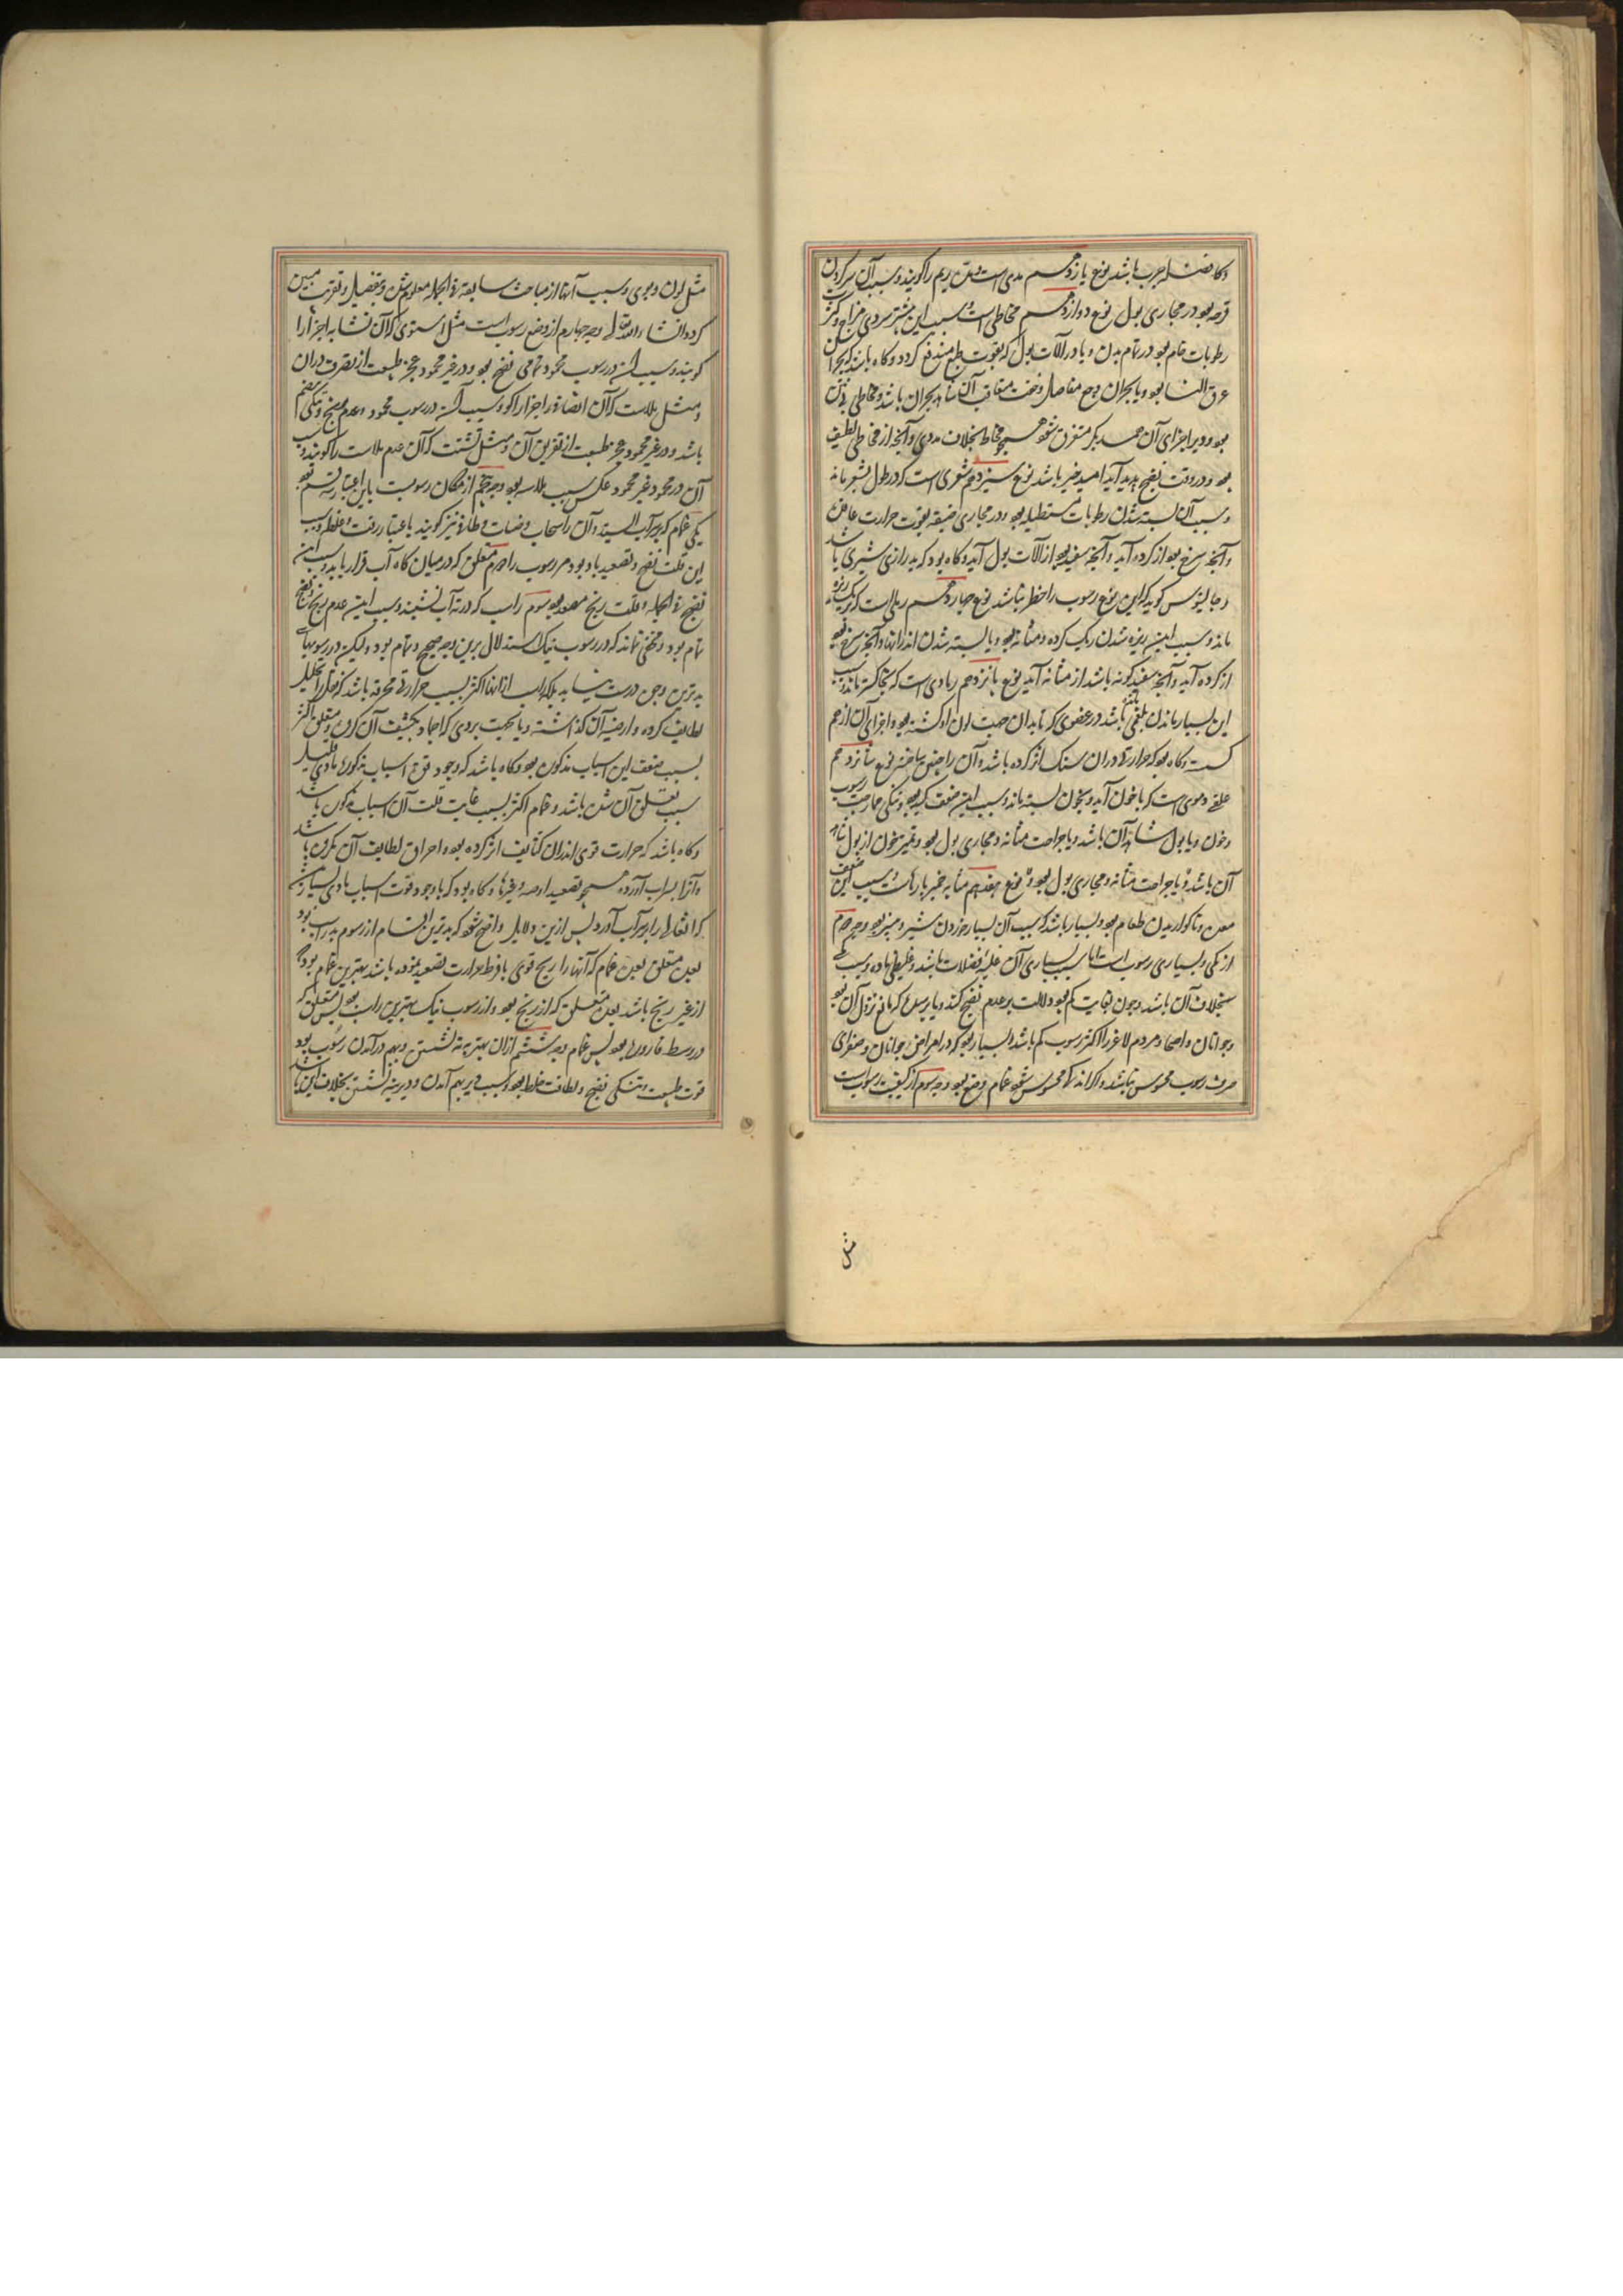 باشد نوع یازدهم مدی است و مده ریم را گویند و سبب آن
قرحه بود در مجاری بول نوع دوازدهم مخاطی است و سبب این بیشتر سردی مزاج و کثرت
رطوبات خام بود در تمام بدن و یا در آلات بول که بقوت طبع مندفع گردد و گاه باشد که بحران
عرق النسا بود و یا بحران وجع مفاصل و خفت متعاقب آن شاهد بحران باشد و مخاطی
بود و دیر اجزای آن از همدیگر متفرق شود بخلاف مدی و آنچه از مخاطی لطیف
بود و در وقت نضج پدید آید امید خیر باشد نوع سیزدهم شعری است که در طول بشعر ماند
و سبب آن بسته شدن رطوبات مستطیله بود در مجاری ضیقه بقوت حرارت عاقده
و آنچه سرخ بود از گرده آید و آنچه سفید بود از آلات بول آید و گاه بود که بدرازی شبری باشد
و جالینوس گوید که این نوع رسوب را خطر نباشد نوع چهاردهم رملی است که بریک ریزه
ماند و سبب این ریزه شدن ریک گرده و مثانه بود و یا بسته شدن اندر آنها و آنچه سرخ بود
از گرده آید و آنچه سفید گونه باشد از مثانه آید نوع پانزدهم رمادی است که بخاکستر ماند و سبب
این بسیار ماندن بلغمی باشد در عضوی که بدان جهت لون او گشته بود و اجزای آن از هم
گسسته و گاه بود که حرارتی دران
علقی دموی است که با خون آید و بخون بسته ماند و سبب این ضعف جگر بود
و خون و یا بول آن باشد و یا جراحت مثانه و مجاری بول بود و تمیز خون از بول
آن باشد و یا جراحت مثانه و مجاری بول بود نوع هفدهم مشابه خمیر پارهاست و سبب این ضعف
معده و ناگواریدن طعام بود و بسیار باشد که سبب آن بسیار خوردن شیر و پنیر بود وجه دوم
از کمی و بسیاری رسوب است اما سبب بسیاری آن غلبهٔ فضلات باشد و غلیظی ماده و سبب کمی
بخلاف آن باشد و چون بغایت کم بود دلالت بر عدم نضج کند و یا بر سده که مانع نزول آن بود
و جوانان و اصحا و مردم لاغر را اکثر رسوب کم باشد و بسیار بود که در امراض جوانان و صفرای
صرف رسوب محسوس نباشد و اگر اندکی محسوس شود غمام وضع بود وجه سوم از کیفیت رسوبست
مثل
مثل لون و بوی و سبب آنها از مباحث سابقه فی الجمله معلوم شد و بتفصیل و تقریب مبین
گردد انشاء الله تعالی وجه چهارم از وضع رسوب است مثل استوی که آن تشابه اجزا را
گویند و سبب این در رسوب محمود تمامی نضج بود و در غیر محمود عجز طبیعت از تصرف دران
و مثل ملاست که آن اتصال اجزا را گویند و سبب این در رسوب محمود عدم ریح و نیکی هضم
باشد و در غیر محمود عجز طبیعت از تفریق آن و مثل تشتت که آن عدم ملاست را گویند و سبب
آن در محمود و غیر محمود عکس سبب ملاست بود وجه پنجم از مکان رسوبست باین اعتبار سه قسم بود
یکی غمام که بر سر آب ایستد و آن را سحاب و ضباب و طافی نیز گویند باعتبار رقت و غلظ و سبب
این قلت نضج و تصعید باد بود مر رسوب را دوم متعلق که در میان گاه آب قرار یابد و سبب این
نضج فی الجمله و قلت ریح مصعد بود سوم راسب که در ته آب نشیند و سبب این عدم ریح و نضج
تام بود و مخفی نماند که در رسوب نیک استدلال برین وجه صحیح و تمام بود ولیکن در رسوبهای
بد برین وجه درست نیاید بلکه راسب ازانها اکثر بسبب حرارتی محرقه باشد که تحلیل
لطایف کرده و ارضیه آن گذاشته و یا بجهت بردی که اجماد و تکثیف آن کرده و متعلق اکثر
بسبب ضعف این اسباب مذکوره بود و گاه باشد که وجود قوت اسباب مذکوره بادی قلیل
سبب تعلق آن شده باشد و غمام اکثر بسبب غایت قلت آن اسباب مذکوره باشد
و گاه باشد که حرارت قوی اندران کثایف اثر کرده بود و احراق لطایف آن کرده باشد
و آنرا بسر آب آورده همچو تصعید ادویه و غیرها و گاه بود که با وجود قوت اسباب بادی بسیار
که اثقال را بر سر آب آورد پس ازین دلایل واضح شود که بدترین اقسام از رسوم بد راسب بود
بعده متعلق بعده غمام که آنها را ریح قوی یا فرط حرارت تصعید نموده باشد بهترین غمام بود که
از غیر ریح باشد بعده متعلق که از ریح بود و از رسوب نیک بهترین راسب بود پس متعلق که
در وسط قاروره بود پس غمام وجه ششم از زمان بهتر به ته نشستن و بهم درآمدن رسوب بود
قوت طبیعت و نیکی نضج و لطافت خلط بود و سبب دیر بهم آمدن و دیر به ته نشستن بخلاف این باشد